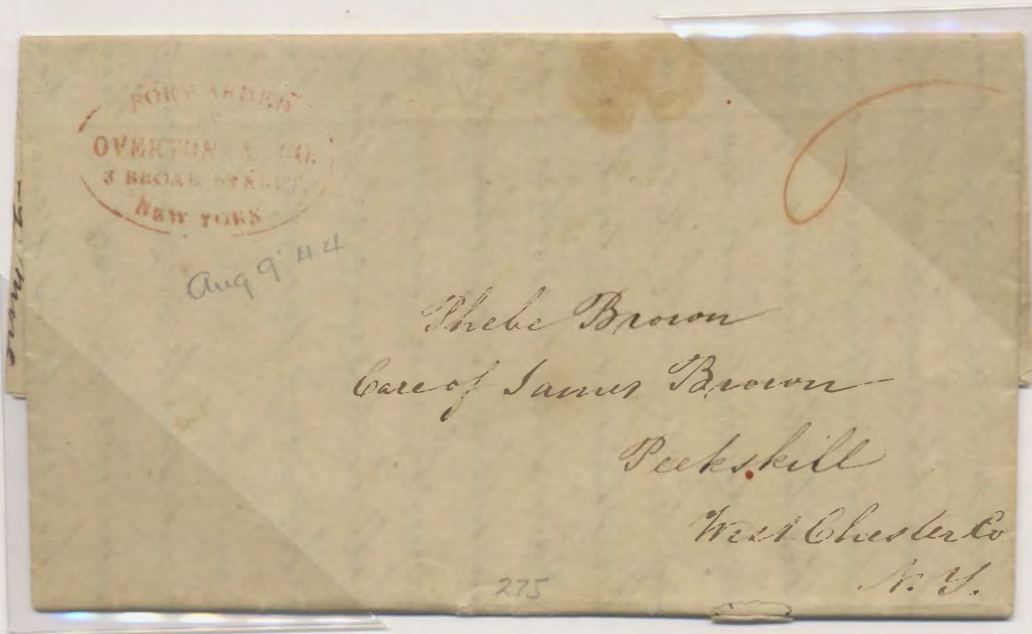 FORWARDED
BY
OVERTON & CO.
3 BROAD STREET,
NEW YORK
Aug 9 '44
Phebe Brown
Care of James Brown
Peekskill
West Chester Co
N. Y.
275